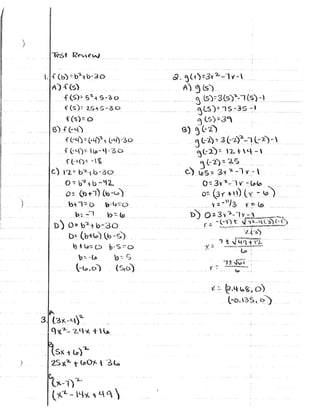 Test Review
1. f(b)=b²+b-30
A) f(5)
f(5)=5²+5-30
f(5)=25+5-30
f(5)=0
B) f(-4)
f(-4)=(-4)²+(-4)-30
f(-4)=16-4-30
f(-4)=-18
C) 12=b²+b-30
0=b²+b-42
0=(b+7)(b-6)
b+7=0 b-6=0
b=-7 b=6
D) 0=b²+b-30
0=(b+6)(b-5)
b+6=0 b-5=0
b=-6 b=5
(-6,0) (5,0)
2. g(r)=3r²-7r-1
A) g(5)
g(5)=3(5)²-7(5)-1
g(5)=75-35-1
g(5)=39
B) g(-2)
g(-2)=3(-2)²-7(-2)-1
g(-2)=12+14-1
g(-2)=25
C) 65=3r²-7r-1
0=3r²-7r-66
0=(3r+11)(r-6)
r=-11/3 r=6
D) 0=3r²-7r-1
r=-(-7)±√7²-4(3)(-1)
2(3)
x=7±√49+12
6
r=7±√61
6
x=(2.468,0)
(-0.135,0)
3. A
(3x-4)²
9x²-24x+16
B
(5x+6)²
25x²+60x+36
C
(x-7)²
(x²-14x+49)